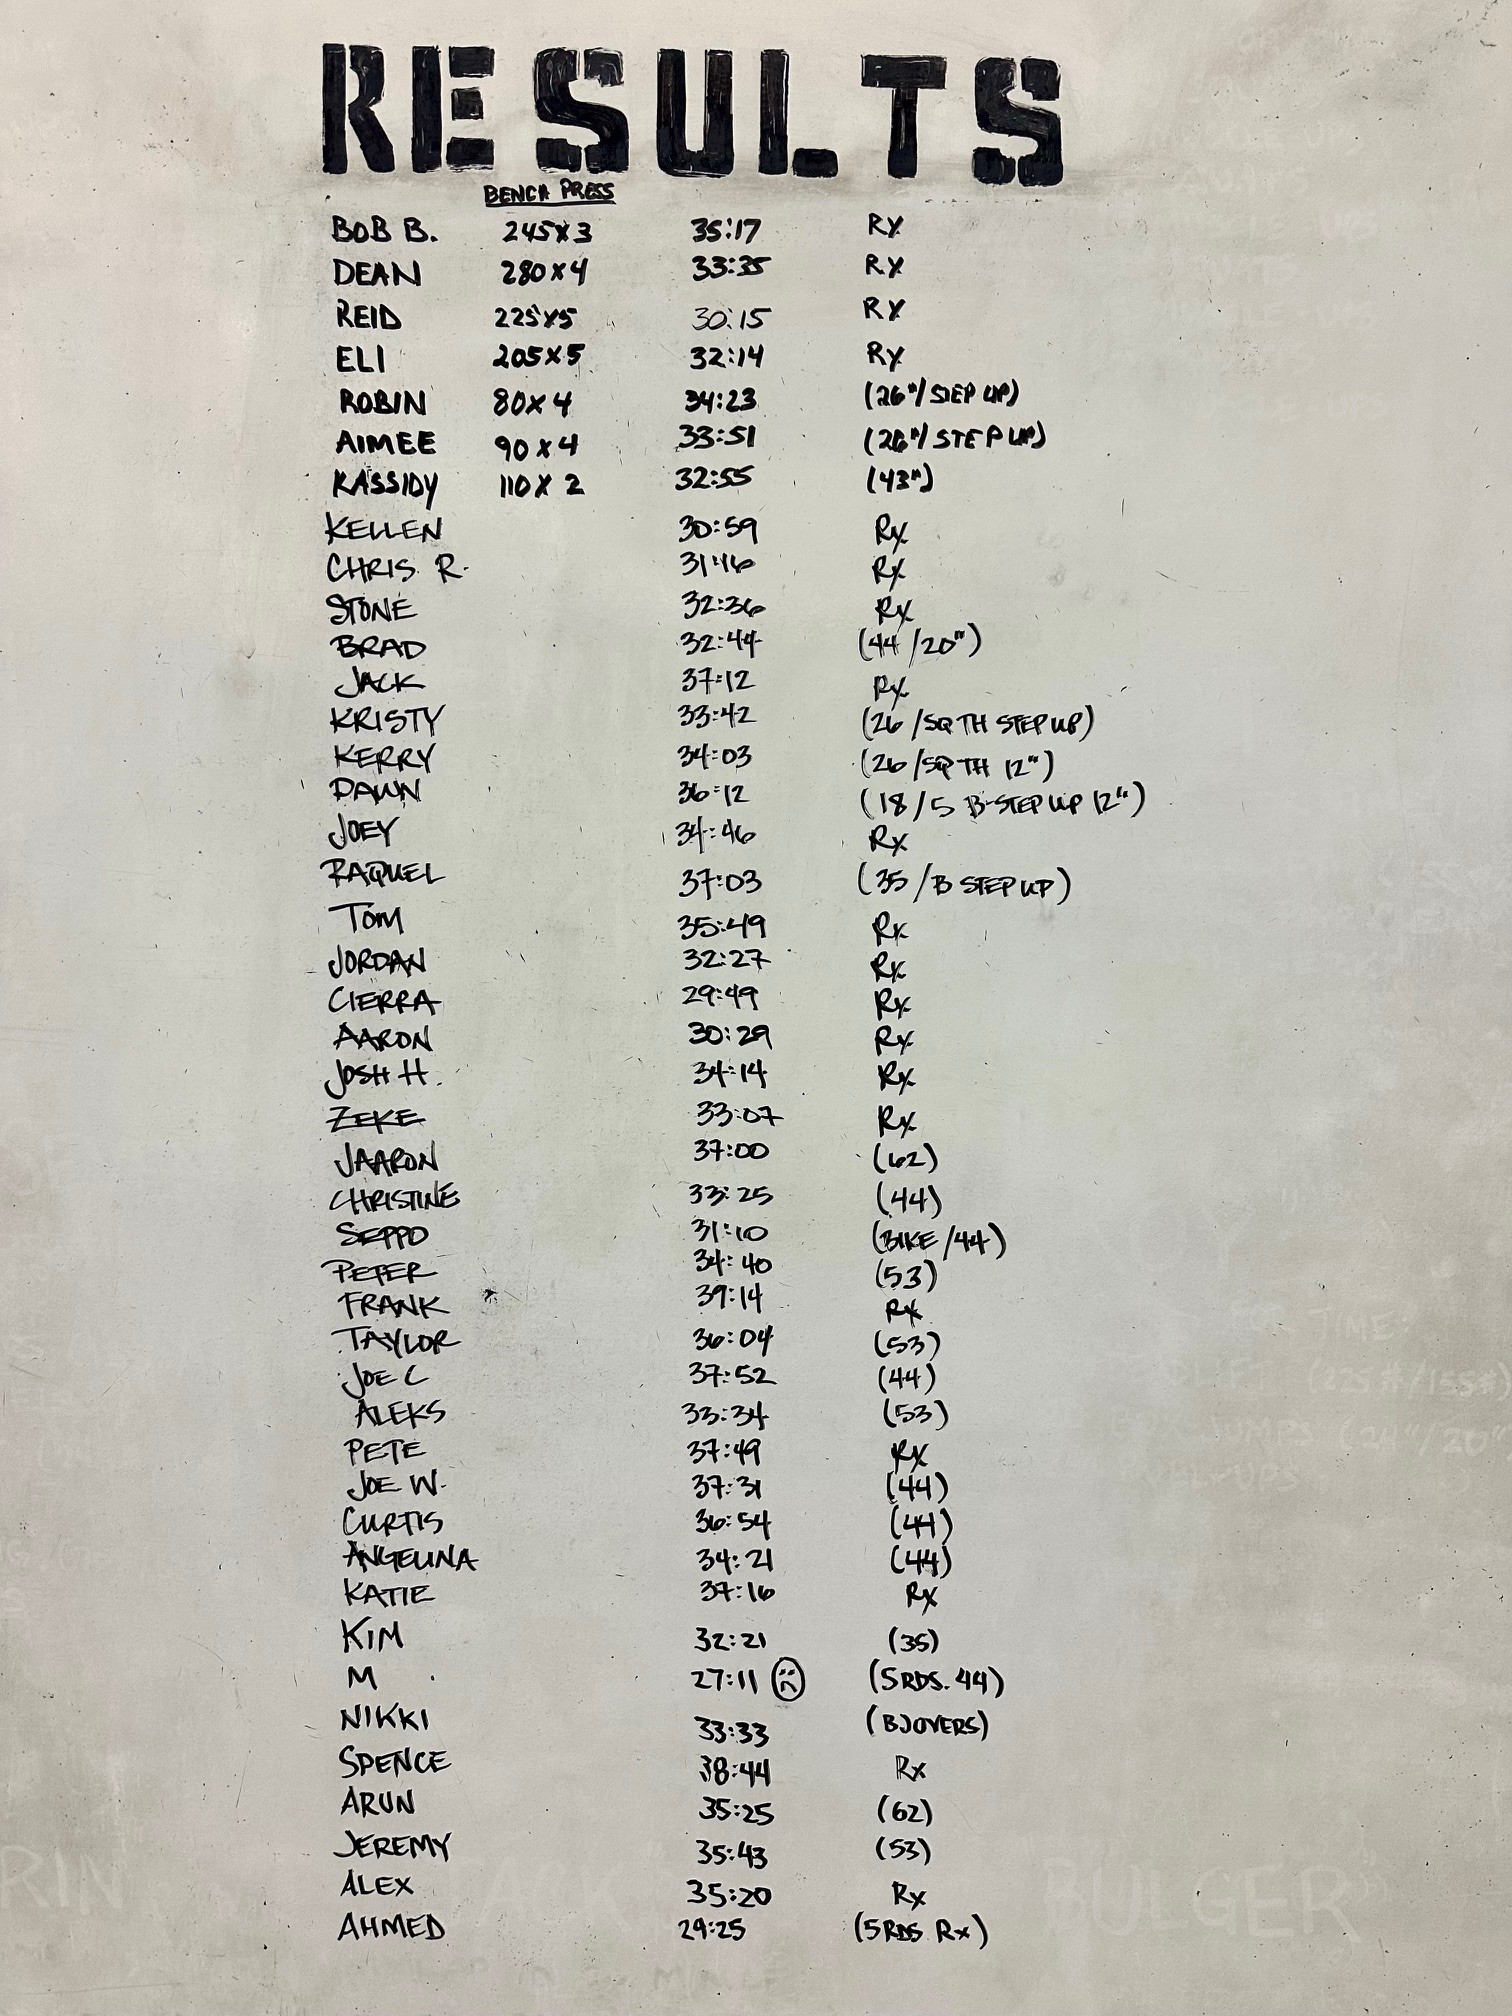 RESULTS
BENCH PRESS
BOB B. 245X3 35:17 RX
DEAN 280X4 33:35 RX
REID 225X5 30:15 RX
ELI 205X5 32:14 RX
ROBIN 80X4 34:23 (26"/STEP UP)
AIMEE 90X4 33:51 (26"/STEP UP)
KASSIDY 110X2 32:55 (43")
KELLEN 30:59 Rx
CHRIS R. 31:16 Rx
STONE 32:36 Rx
BRAD 32:44 (44/20")
JACK 37:12 Rx
KRISTY 33:42 (26/SQ TH STEP UP)
KERRY 34:03 (26/SQ TH 12")
DAWN 36:12 (18/5 B-STEP UP 12")
JOEY 34:46 Rx
RAQUEL 37:03 (35/B STEP UP)
TOM 35:49 Rx
JORDAN 32:27 Rx
CIERRA 29:49 Rx
AARON 30:29 Rx
JOSH H. 34:14 Rx
ZEKE 33:07 Rx
JAARON 37:00 (62)
CHRISTINE 33:25 (44)
SEPPO 31:10 (BIKE/44)
PETER 34:40 (53)
FRANK 39:14 Rx
TAYLOR 36:04 (53)
JOE C 37:52 (44)
ALEKS 33:34 (53)
PETE 37:49 Rx
JOE W. 37:31 (44)
CURTIS 36:54 (44)
ANGELINA 34:21 (44)
KATIE 37:16 Rx
KIM 32:21 (35)
M 27:11 (5RDS. 44)
NIKKI 33:33 (BJOVERS)
SPENCE 38:44 Rx
ARUN 35:25 (62)
JEREMY 35:43 (53)
ALEX 35:20 Rx
AHMED 29:25 (5RDS Rx)
BULGER